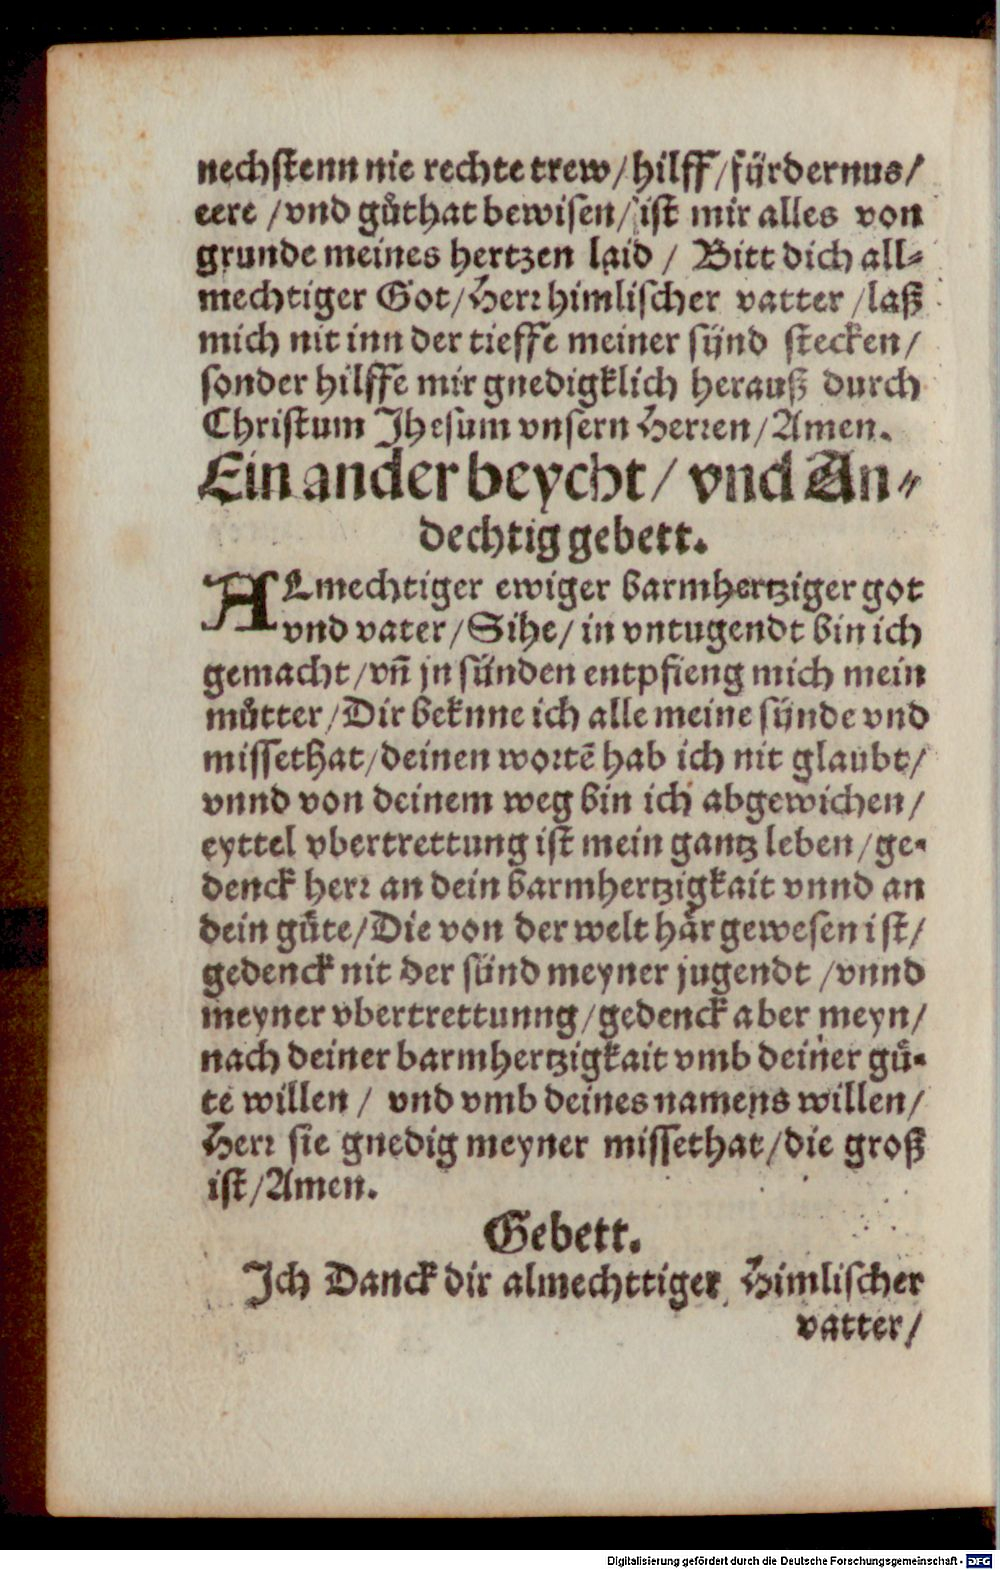 nechstenn nie rechte trew/hilff/fürdernus/
eere /vnd gůthat bewisen/ist mir alles von
grunde meines hertzen laid / Bitt dich all⸗
mechtiger Got/Herr himlischer vatter /laß
mich nit inn der tieffe meiner sünd stecken/
sonder hilffe mir gnedigklich herauß durch
Christum Jhesum vnsern Herren/Amen.
Ein ander beycht/ vnd An⸗
dechtig gebett.
ALmechtiger ewiger barmhertziger got
vnd vater/Sihe/ in vntugendt bin ich
gemacht/vñ jn sünden entpfieng mich mein
můtter/Dir beknne ich alle meine sünde vnd
missethat/deinen wortē hab ich nit glaubt/
vnnd von deinem weg bin ich abgewichen/
eyttel vbertrettung ist mein gantz leben/ge⸗
denck herr an dein barmhertzigkait vnnd an
dein gůte/Die von der welt hår gewesen ist/
gedenck nit der sünd meyner jugendt /vnnd
meyner vbertrettunng/gedenck aber meyn/
nach deiner barmhertzigkait vmb deiner gů⸗
te willen/ vnd vmb deines namens willen/
Herr sie gnedig meyner missethat/die groß
ist/Amen.
Gebett.
Ich Danck dir almechttiger Himlischer
vatter/
Digitalisierung gefördert durch die Deutsche Forschungsgemeinschaft - DFG